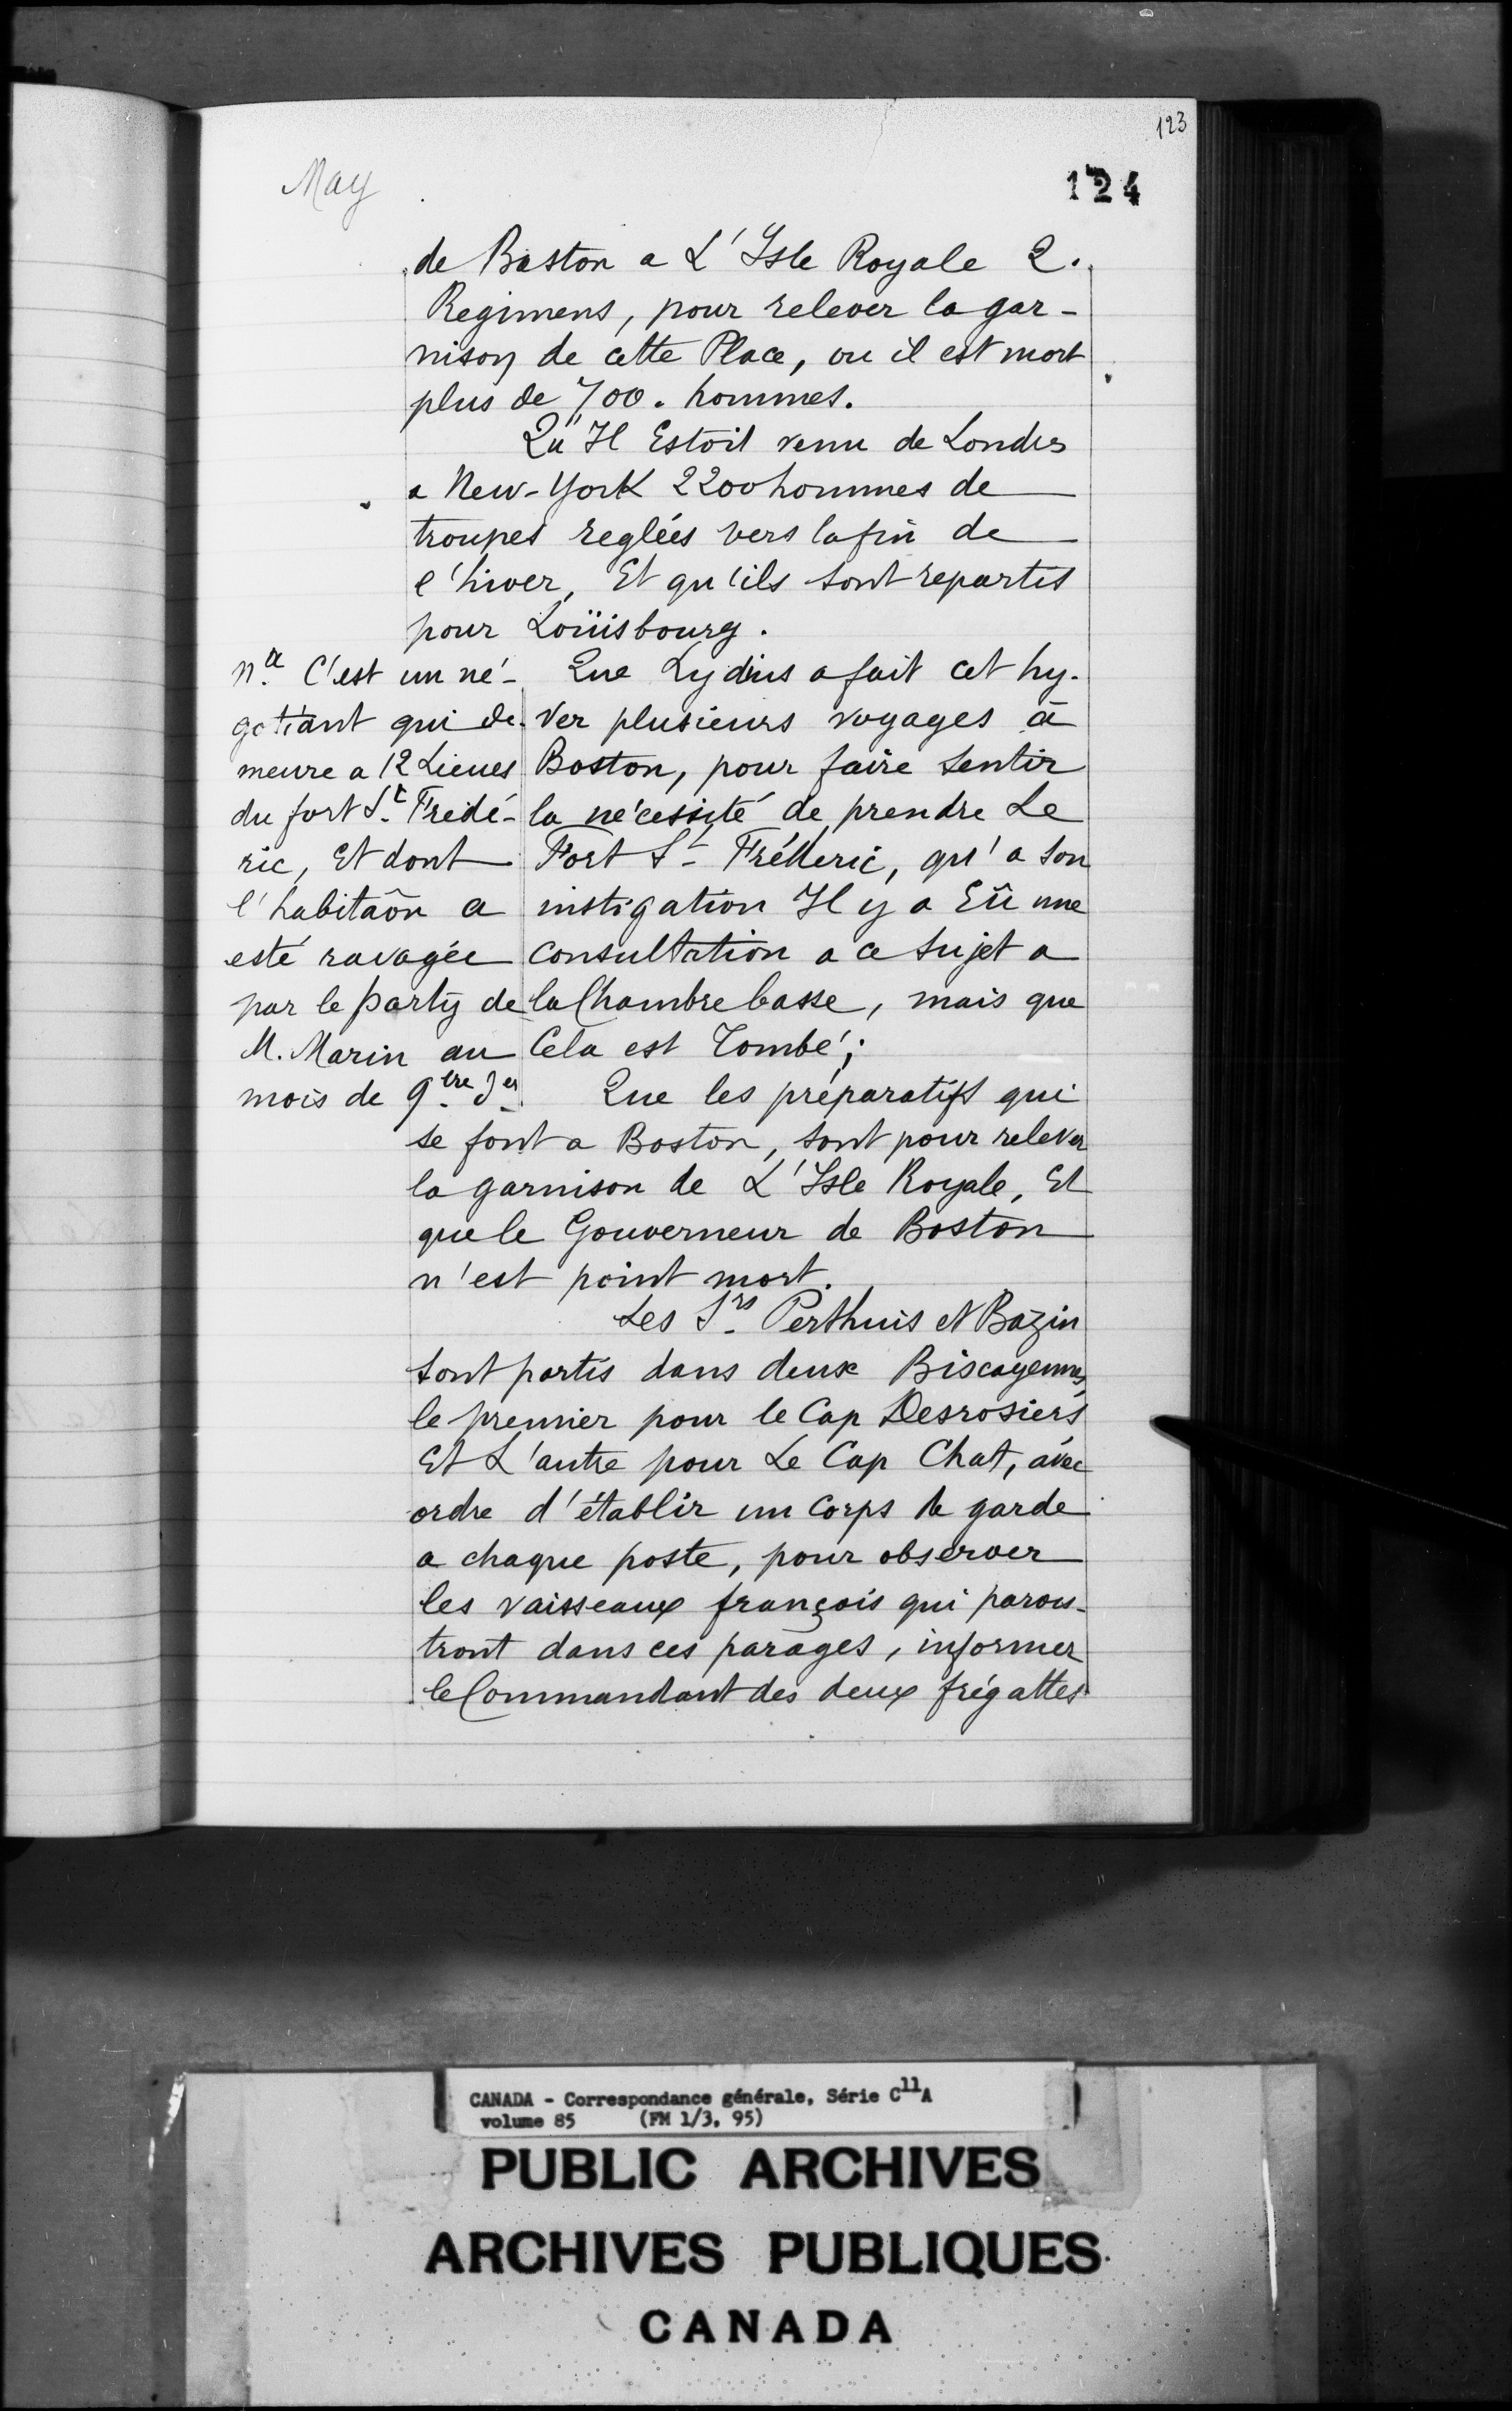 123
May
124
de Baston a L'Isle Royale 2.
Regimens, pour relever la gar-
nison de cette Place, ou il est mort
plus de 700. hommes.
Qu'Il Estoit venu de Londres
a New-York 2200 hommes de
troupes reglées vers la fin de
l'hiver, Et qu'ils sont repartis
pour Loüisbourg.
Que Lydius a fait cet hy-
ver plusieurs voyages à
Boston, pour faire sentir
la nécessité de prendre Le
Fort St Fréderic, qu'a son
instigation Il y a Eû une
consultation a ce sujet a
la Chambre basse, mais que
Cela est Tombé;
Que les préparatifs qui
se font a Boston, sont pour relever
la garnison de L'Isle Royale, Et
que le Gouverneur de Boston
n'est point mort.
Les Srs Perthuis et Bazin
sont partis dans deux Biscayennes,
le premier pour le Cap Desrosiers
Et L'autre pour Le Cap Chat, avec
ordre d'établir un Corps de garde
a chaque poste, pour observer
les vaisseaux françois qui parois-
tront dans ces parages, informer
le Commandant des deux frégattes
na C'est un né-
gotiant qui de-
meure a 12 Lieues
du fort St Frédé-
ric, Et dont
l'habitaôn a
esté ravagée
par le party de
M. Marin au
mois de 9bre der
CANADA - Correspondance générale, Série C11A
volume 85 (FM 1/3, 95)
PUBLIC ARCHIVES
ARCHIVES PUBLIQUES
CANADA